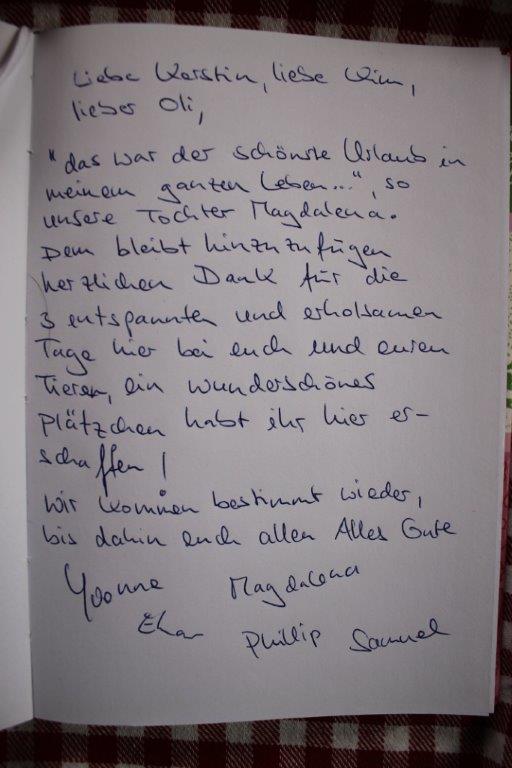 Liebe Kerstin, liebe Kim,
lieber Oli,
"das war der schönste Urlaub in
meinem ganzen Leben...", so
unsere Tochter Magdalena.
Dem bleibt hinzuzufügen
herzlichen Dank für die
3 entspannten und erholsamen
Tage hier bei euch und euren
Tieren, ein wunderschönes
Plätzchen habt ihr hier er-
schaffen!
Wir kommen bestimmt wieder,
bis dahin euch allen Alles Gute
Yvonne Magdalena
Phillip Samuel